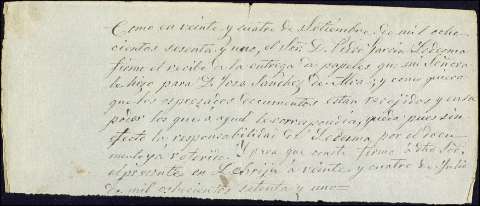 Como en veinte y cuatro de Setiembre de mil ocho
cientos sesenta y uno, el Sor. D. Pedro Garcia Ledesma
firmó el recibo a la entrega de papeles que mi Señora
le hizo para D. José Sanchez de Alva; y como quiera
que los espresados documentos están recojidos y en su
poder los que a aquel le correspondia, queda pues sin
efecto la responsabilidad de Ledesma por el docu-
mento ya referido. Y para que conste firmo a dho Sor.
el presente en Lebrija á veinte y cuatro de Julio
de mil ochocientos setenta y uno=